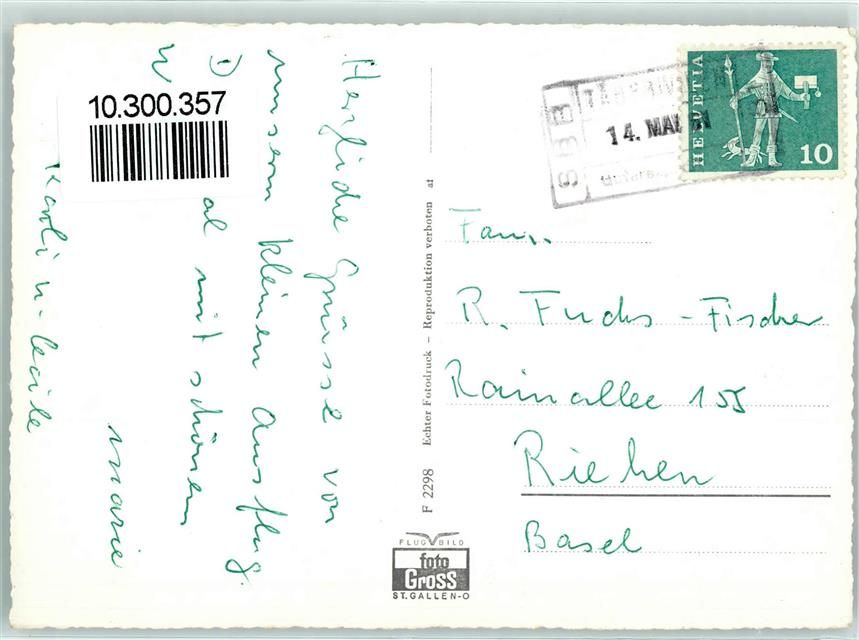 Herzliche Grüsse von
unserm kleinen Ausflug.
al mit schönem
W
Marie
Karli u. Cécile
10.300.357
Echter Fotodruck – Reproduktion verboten af
F 2298
FLUG BILD
foto
Gross
ST. GALLEN-O
SBB
14. MAI
HELVETIA
10
Fam.
R. Fuchs-Fischer
Rainallee 155
Riehen
Basel